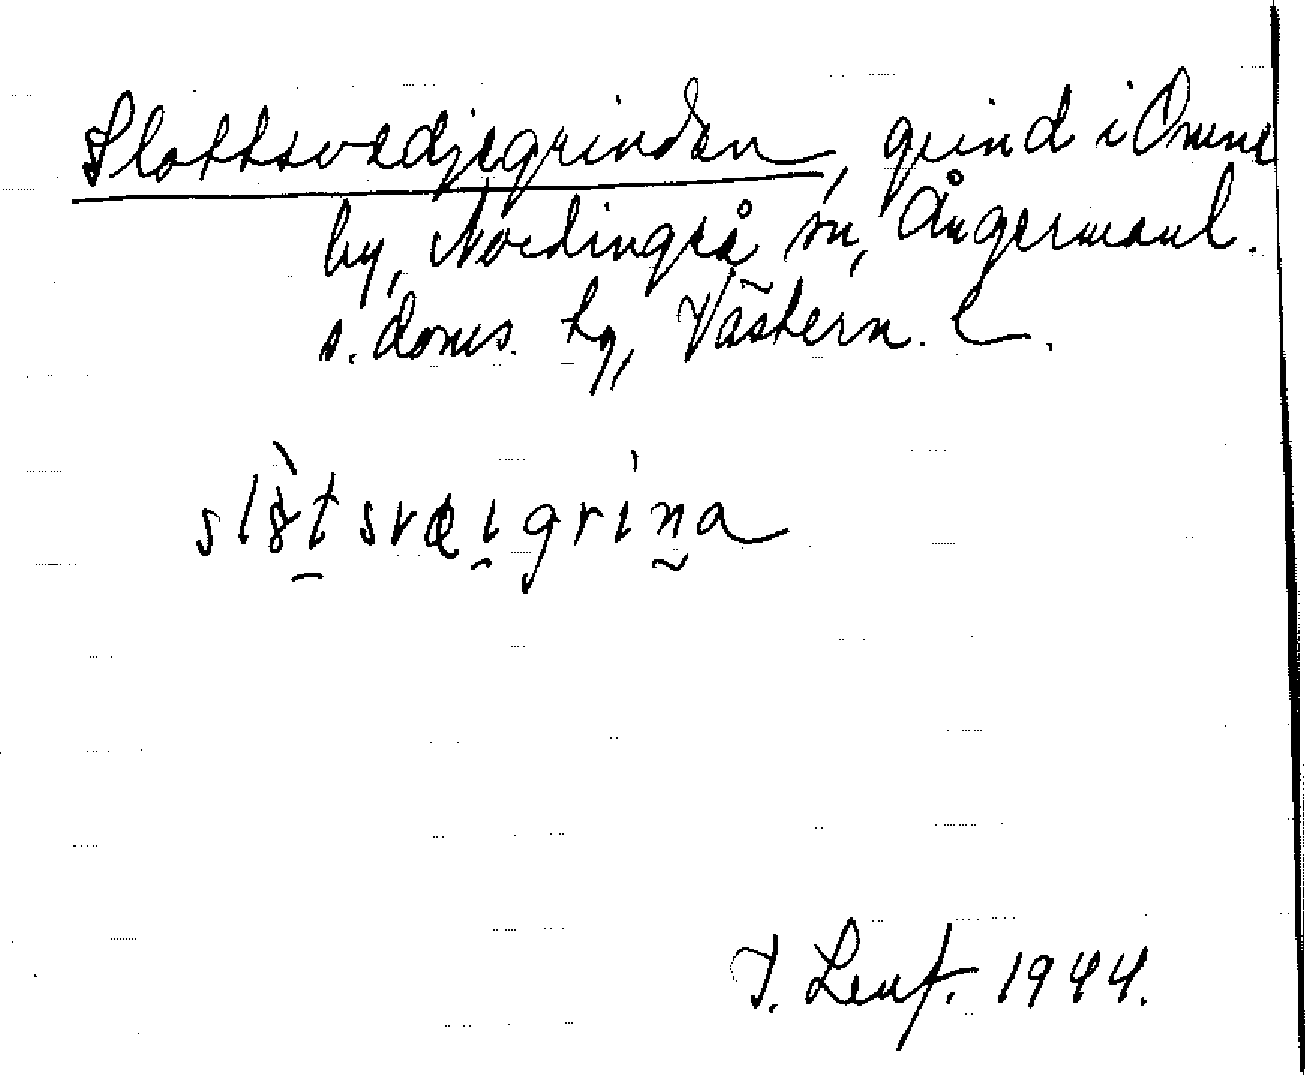 Slottsvedjegrinden, grind i Omne
by, Nordingrå sn, Ångermanl.
s. doms. hg, Västern. L.
slòtsvæigrina
T. Lenf. 1944.